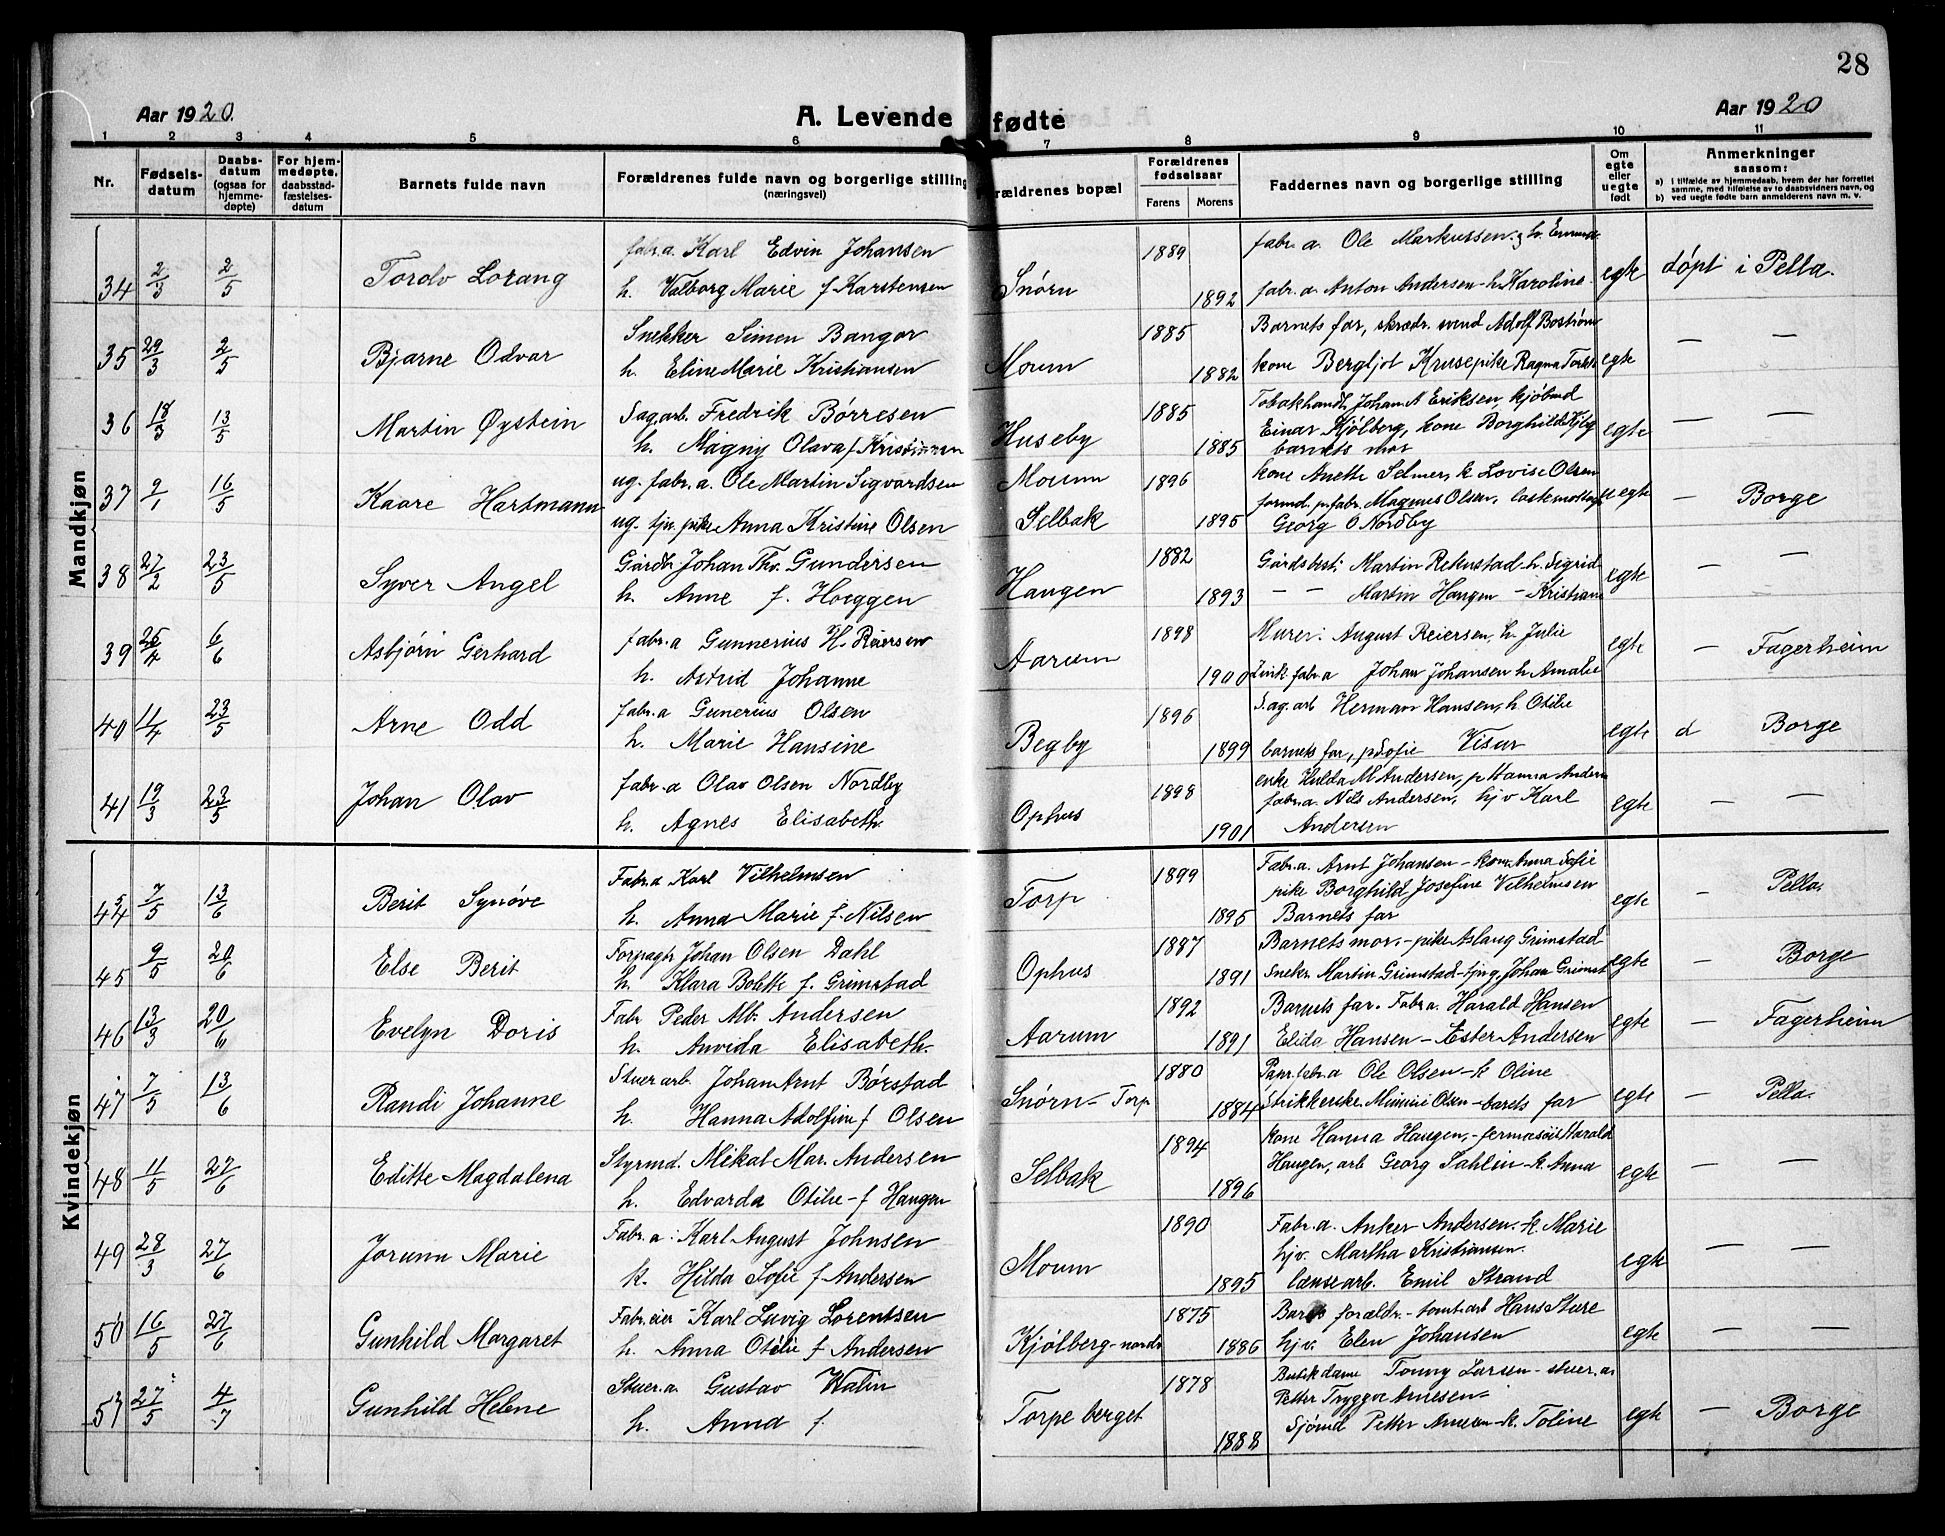 28
Aar 1920.
A. Levende fødte
Aar 1920
1 2 3 4 5 6 7 8 9 10 11
Nr.
Fødsels-
datum
Daabs-
datum
(ogsaa for
hjemme-
døpte)
For hjem-
medøpte,
daabsstad-
fæstelses-
datum
Barnets fulde navn
Forældrenes fulde navn og borgerlige stilling
(næringsvei)
Forældrenes bopæl
Forældrenes
fødselsaar
Farens Morens
Faddernes navn og borgerlige stilling
Om
egte
eller
uegte
født
Anmerkninger
saasom:
a) i tilfælde av hjemmedaab, hvem der har forrettet
samme, med tilføielse av to daabsvidners navn, og
b) ved uegte fødte barn anmelderens navn m. v.
Mandkjøn
34 2/3 2/5 Torolv Lorang
fabr.a. Karl Edvin Johansen
h. Valborg Marie f Karstensen
Snørn 1889 1892
fabr. a. Ole Markussen og h.
fabr. a. Anton Andersen h Karoline
egte døpt i Pella.
35 29/3 2/5 Bjarne Odvar
Snekker Simen Bangor
h. Eline Marie Kristiansen
Moum 1885 1882
Barnets far, skrædr. svend Adolf Bostrøm
kone Bergljot Kruse pike Ragna
egte — —
36 18/3 13/5 Martin Øystein
Sagarb. Fredrik Børresen
h. Magny Olava f
Huseby 1885 1885
Tobakhandl. Johan A Eriksen kjøbmd
Einar Kjølberg, kone Borghild
barnets mor
egte — —
37 9/1 16/5 Kaare Hartmann
ug. fabr. a. Ole Martin Sigvardsen
ug. tjn. pike Anna Kristine Olsen
Moum
Selbak 1896 1895
kone Anette Selmer, k Lovise Olsen
formd. p. fabr. Magnus Olsen,
Georg O Nordby
uegte — Borge
38 27/2 23/5 Syver Angel
Gardbr. Johan Thv. Gundersen
h. Anne f. Hoeggen
Haugen 1882 1893
Gårdsbest. Martin Rekustad h. Sigrid
— — Martin Haugen — Kristiane
egte —
39 25/4 6/6 Asbjørn Gerhard
fabr.a Gunnerius H. Reiersen
h. Astrid Johanne
Aarum 1898 1900
Murer: August Reiersen, h Julie
fabr. a Johan Johansen h Amalie
egte — Fagerheim
40 11/4 23/5 Arne Odd
fabr.a Gunerius Olsen
h. Marie Hansine
Begby 1896 1899
Sag. arb Herman Hansen, h Otilie
barnets far, p Sofie Visur
egte d Borge
41 19/3 23/5 Johan Olav
fabr. a Olav Olsen Nordby
h. Agnes Elisabeth.
Ophus 1898 1901
enke Hulda M Andersen, p Hanna Andersen
fabr. a. Nils Andersen, hjv Karl
Andersen
egte — —
Kvindekjøn
44 7/5 13/6 Berit Synøve
Fabr.a Karl Vilhelmsen
h. Anna Marie f. Nilsen
Torp 1899 1895
Fabr. a. Arnt Johansen — kone Anna Sofie
pike Borghild Josefine Vilhelmsen
Barnets far
egte — Pella.
45 9/5 20/6 Else Berit
Forpagtr Johan Olsen Dahl
h. Klara Bolette f. Grimstad
Ophus 1887 1891
Barnets mor. — pike Aslaug Grimstad
Snekr. Martin Grimstad — Johan Grimst
egte — Borge
46 13/3 20/6 Evelyn Doris
Fabr Peder Alb. Andersen
h. Anvida Elisabeth.
Aarum 1892 1891
Barnets far. Fabr a. Harald Hansen
Elida Hansen — Ester Andersen
egte — Fagerheim
47 7/5 13/6 Randi Johanne
Stuerarb. Johan Arnt Børstad
h. Hanna Adolfine f Olsen
Snørn — Torp 1880 1884
Papr. fabr a Ole Olsen — k Oline
Minnie Olsen — barets far
egte — Pella.
48 11/5 27/6 Editte Magdalena
Styrmd. Mikal Mar. Andersen
h. Edvarda Otilie — f Haugen
Selbak 1894 1896
kone Hanna Haugen, — Harald
Haugen, arb Georg Sahlin — k. Anna
egte — —
49 28/3 27/6 Jorunn Marie
Fabr. a: Karl August Johnsen
k. Hilda Sofie f Andersen
Moum 1890 1895
Fabr. a. Anker Andersen. k Marie
hjv. Martha Kristiansen.
lænsearb. Emil Strand
egte — —
50 16/5 27/6 Gunhild Margaret
Fabr. eier — Karl Luvig Lorentsen
h. Anna Otélie f Andersen
Kjølberg — nordr 1875 1886
Barets forældr. — tomt. arb Hans Sture
hjv. Elen Johansen
egte — —
51 27/5 4/7 Gunhild Helene
Stuer. a. Gustav Walin
h. Anna f
Torpeberget 1878 1888
Butikdame Tonny Larsen — stuer. a.
Petter Tryggve Arnesen —
Sjømd Petter Arnesen — k. Toline
egte — Borge